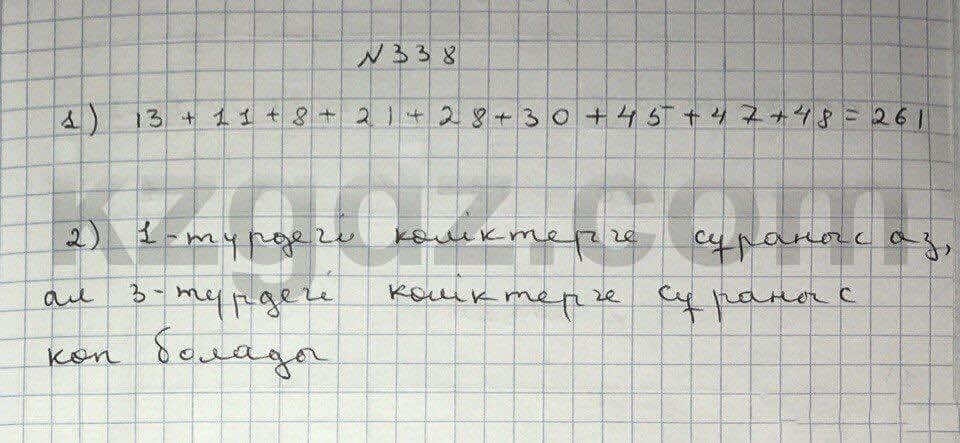 N338
1) 13 + 11 + 8 + 21 + 28 + 30 + 45 + 47 + 48 = 261
kzgaz.com
2) 1-түрдегі көліктерге сұраныс аз,
ал 3-түрдегі көліктерге сұраныс
көп болады